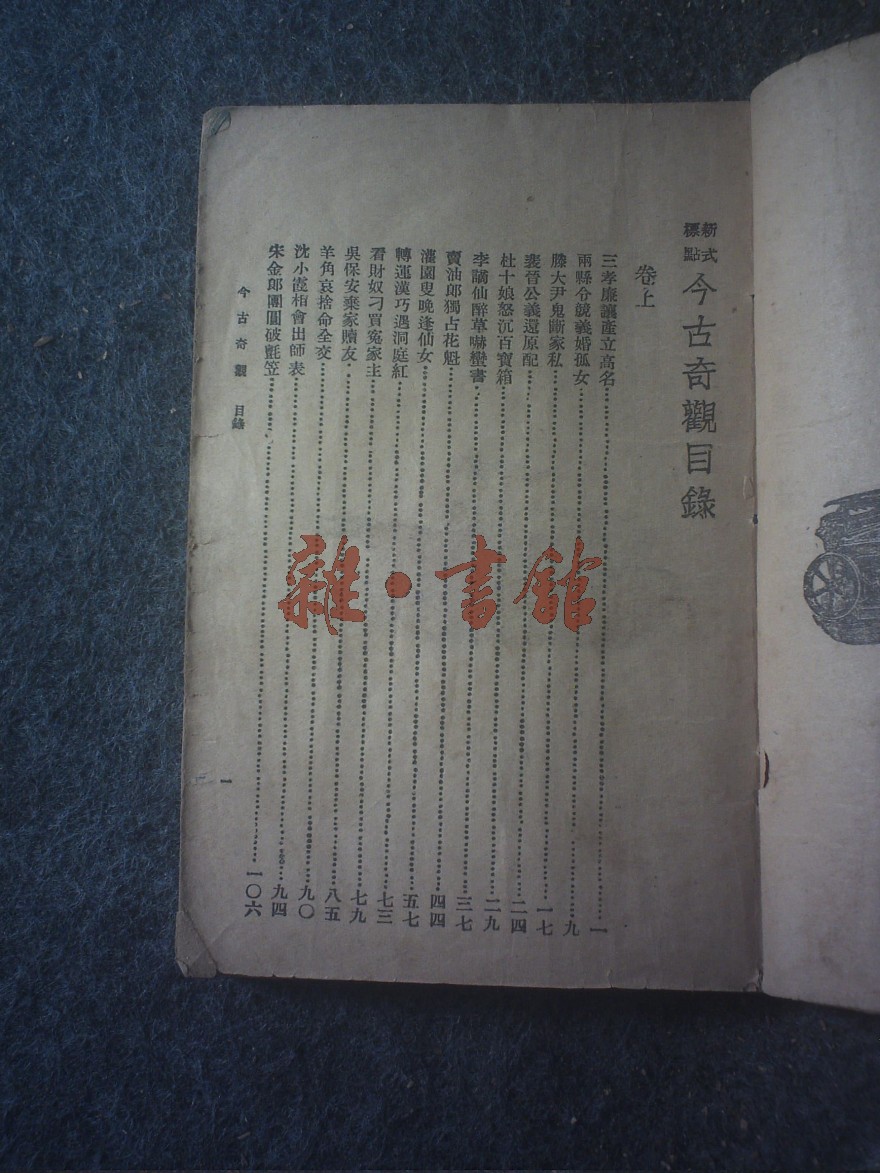 新式標點 今古奇觀目錄
卷上
三孝廉讓產立高名……一
兩縣令競義婚孤女……九
滕大尹鬼斷家私……一七
裴晉公義還原配……二四
杜十娘怒沉百寶箱……二九
李謫仙醉草嚇蠻書……三七
賣油郎獨占花魁……四四
灌園叟晚逢仙女……五七
轉運漢巧遇洞庭紅……七三
看財奴刁買冤家主……七九
吳保安棄家贖友……八五
羊角哀捨命全交……九〇
沈小霞相會出師表……九四
宋金郎團圓破氈笠……一〇六
今古奇觀 目錄
一
雜·書館